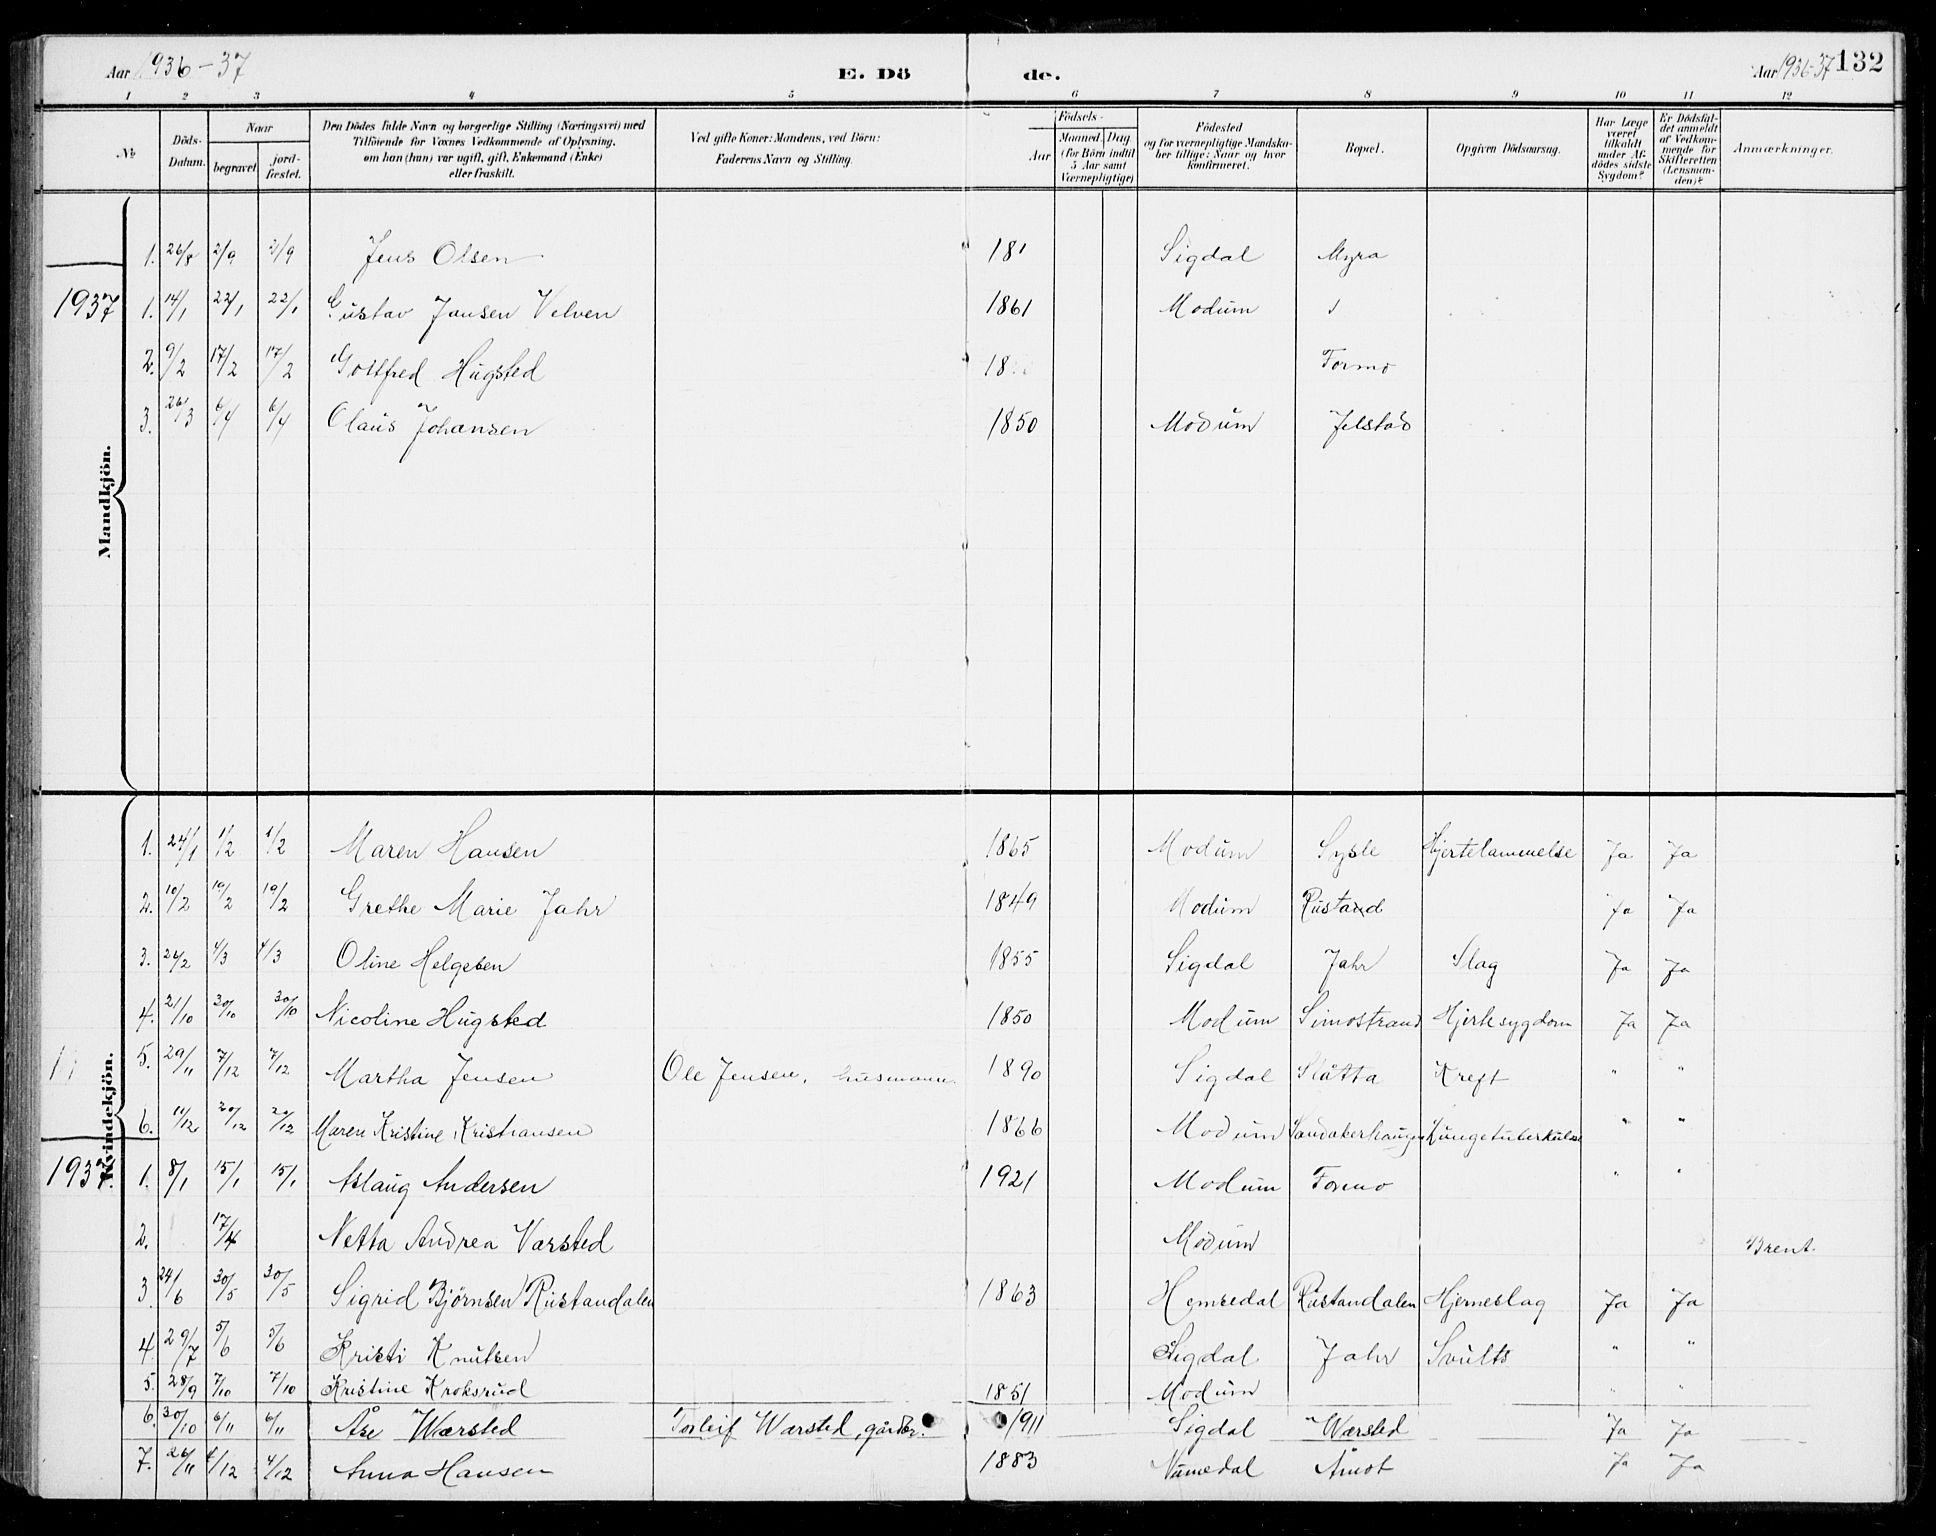 Aar 1936-37 E. Dö de. Aar 1936-37 132
1 2 3 4 5 6 7 8 9 10 11 12
№ Döds-Datum. Naar begravet. jord-fæstet. Den Dödes fulde Navn og borgerlige Stilling (Næringsvei) med Tilföiende for Voxnes Vedkommende af Oplysning, om han (hun) var ugift, gift, Enkemand (Enke) eller fraskilt. Ved gifte Koner: Mandens, ved Börn: Faderens Navn og Stilling. Födsels- Aar Maaned. Dag (for Börn indtil 5 Aar samt Værnepligtige) Födested og for værnepligtige Mandskaber tillige: Naar og hvor konfirmeret. Bopæl. Opgiven Dödsaarsag. Har Læge været tilkaldt under Afdödes sidste Sygdom? Er Dödsfaldet anmeldt af Vedkommende for Skifteretten (Lensmanden)? Anmærkninger.
Mandkjön.
1. 26/8 2/9 2/9 Jens Olsen 181 Sigdal Myra
1937 1. 14/1 22/1 22/1 Gustav Jansen Velven 1861 Modum
2. 9/2 17/2 17/2 Gottfred Hugsted 18 Formo
3. 26/3 6/4 6/4 Olaus Johansen 1850 Modum Jelstad
Kvindekjön.
1. 24/1 1/2 1/2 Maren Hansen 1865 Modum Sysle Hjertelammelse Ja Ja
2. 10/2 19/2 19/2 Grethe Marie Jahr 1849 Modum Rustand Ja Ja
3. 24/2 4/3 4/3 Oline Helgesen 1855 Sigdal Jahr Slag Ja Ja
4. 21/10 30/10 30/10 Nicoline Hugsted 1850 Modum Simostrand Hjertesygdom Ja Ja
5. 29/11 7/12 7/12 Martha Jensen Ole Jensen, husmann. 1890 Sigdal Slåtta Kreft " "
6. 11/12 20/12 20/12 Maren Kristine Kristiansen 1866 Modum Sandakerhaugen Lungetuberkulose " "
1937. 1. 8/1 15/1 15/1 Aslaug Andersen 1921 Modum Formo " "
2. 17/4 Netta Andrea Varsted Modum Brent.
3. 24/6 30/5 30/5 Sigrid Bjørnsen Rustandalen 1863 Hemsedal Rustandalen Hjerneslag Ja Ja
4. 29/7 5/6 5/6 Kristi Knutsen Sigdal Jahr Svults " "
5. 28/9 7/10 7/10 Kristine Kroksrud 1851 Modum " "
6. 30/10 6/11 6/11 Åse Wærsted Torleif Wærsted, gårdbr. 1911 Sigdal Wærsted Ja Ja
7. 26/11 4/12 4/12 Anna Hansen 1883 Numedal Åmot Ja Ja